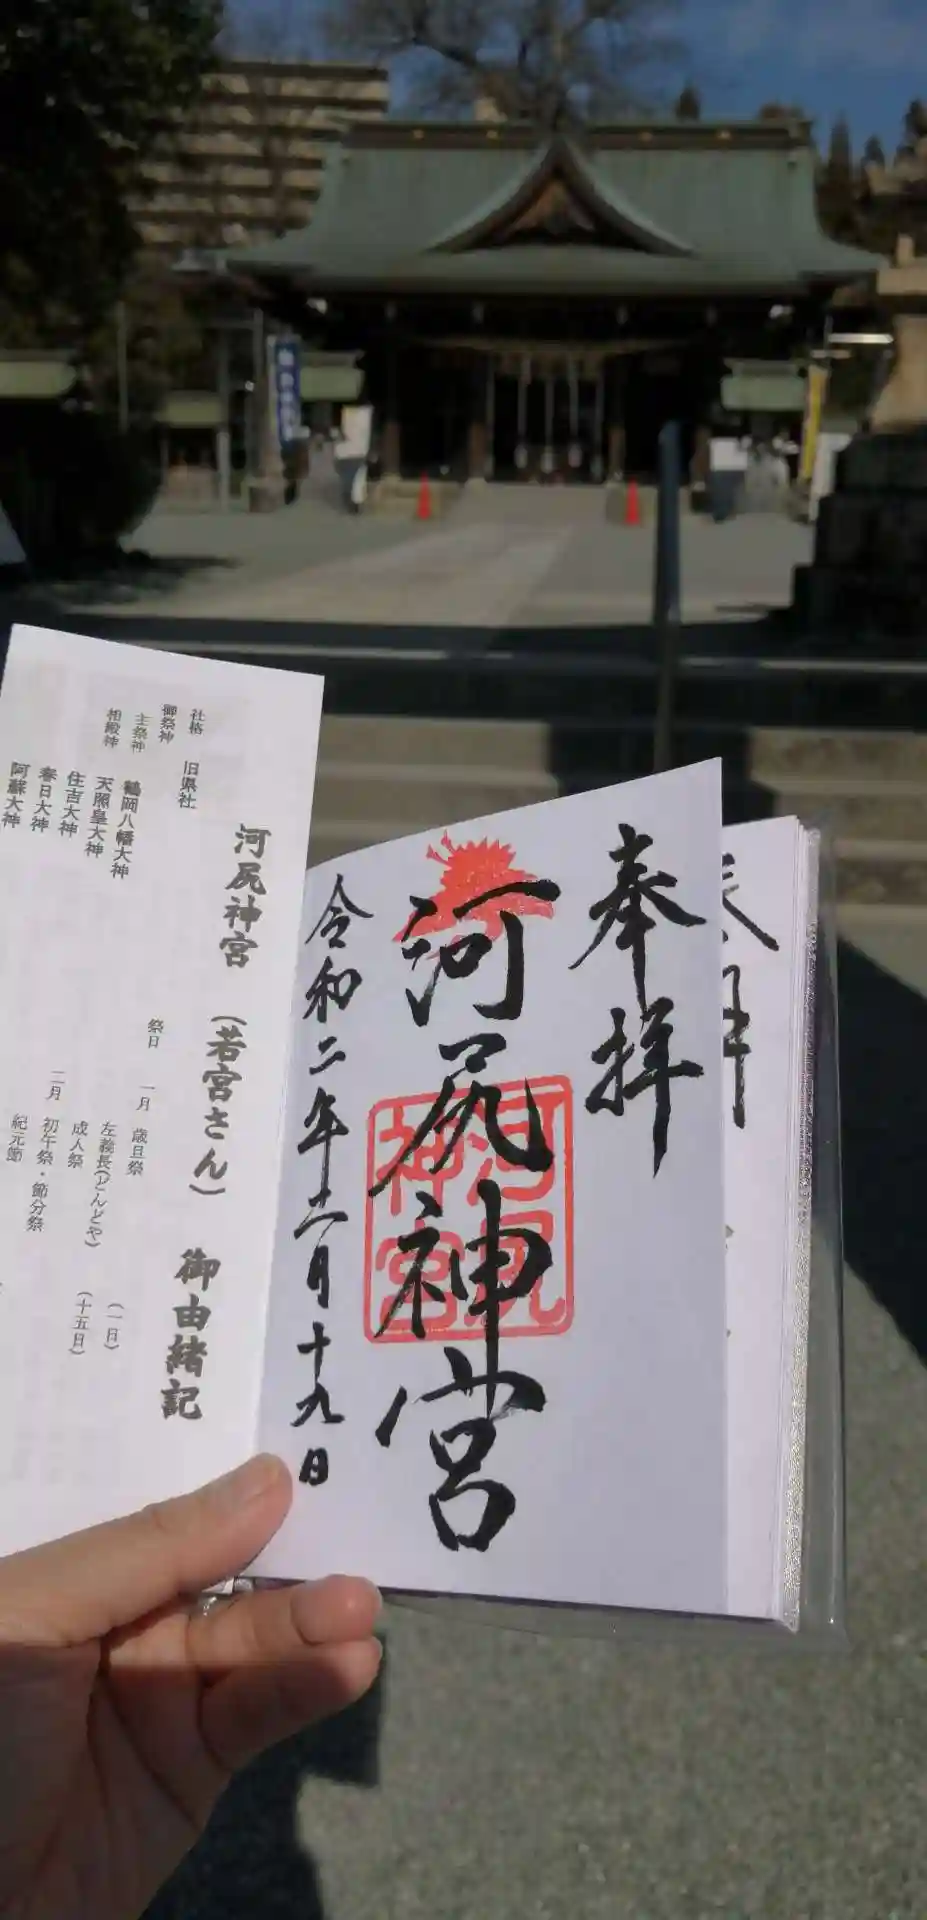 奉拝
河尻神宮
河尻神宮
令和二年十二月十九日
河尻神宮 (若宮さん) 御由緒記
社格 旧県社
御祭神
主祭神 鶴岡八幡大神
相殿神 天照皇大神
住吉大神
春日大神
阿蘇大神
祭日 一月 歳旦祭 (一日)
左義長(どんどや) (十五日)
成人祭
二月 初午祭・節分祭
紀元節